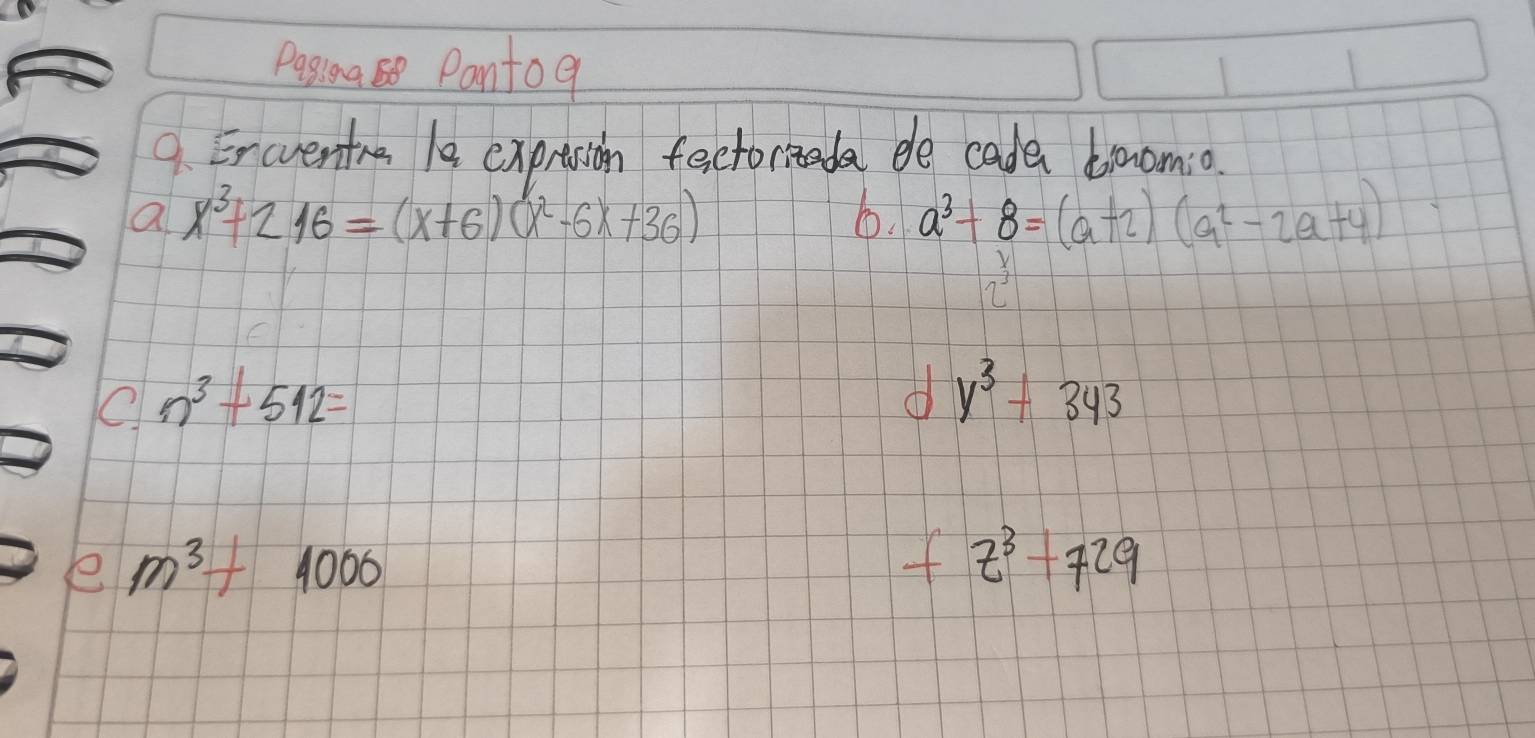 Pagina 58 Panto 9
9. Encuentra la expresión factorizada de cada binomio.
a x³+216=(x+6)(x²-6x+36) b. a³+8=(a+2)(a²-2a+4)
2³
c. n³+512= d y³+343
e m³+1000 f z³+729